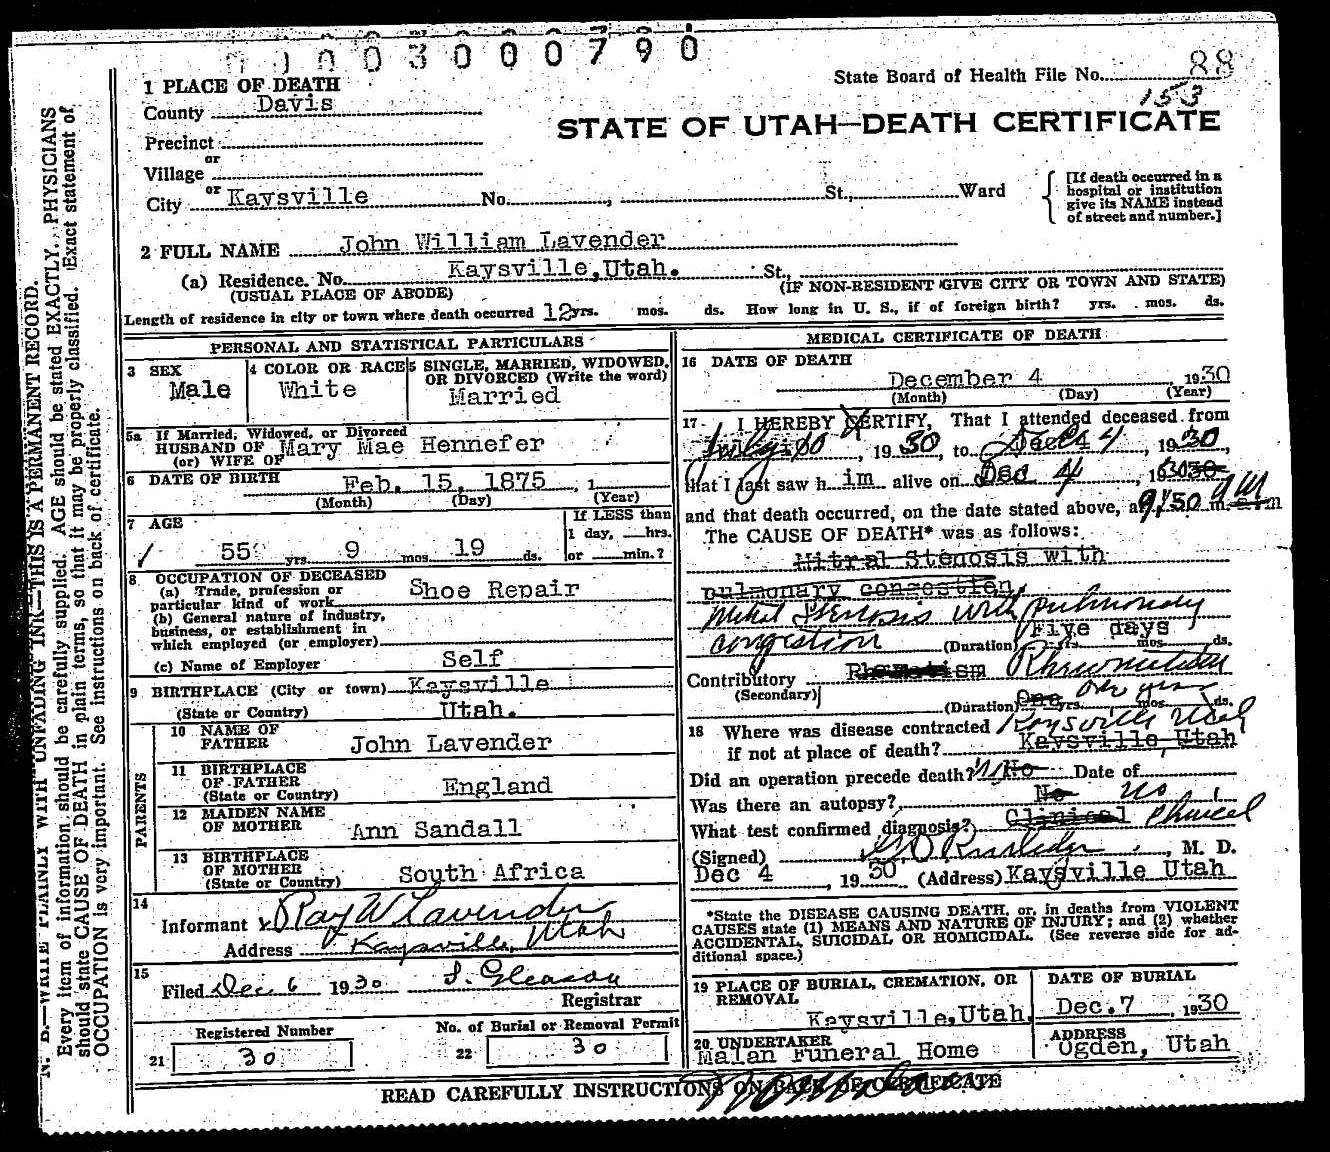 0 0 3 0 0 0 7 9 0
State Board of Health File No. 88
153
STATE OF UTAH—DEATH CERTIFICATE
1 PLACE OF DEATH
County Davis
Precinct
or
Village
or
City Kaysville No. , St., Ward
[If death occurred in a
hospital or institution
give its NAME instead
of street and number.]
2 FULL NAME John William Lavender
(a) Residence. No. Kaysville, Utah. St.,
(USUAL PLACE OF ABODE) (IF NON-RESIDENT GIVE CITY OR TOWN AND STATE)
Length of residence in city or town where death occurred 12 yrs. mos. ds. How long in U. S., if of foreign birth? yrs. mos. ds.
PERSONAL AND STATISTICAL PARTICULARS
3 SEX
Male
4 COLOR OR RACE
White
5 SINGLE, MARRIED, WIDOWED,
OR DIVORCED (Write the word)
Married
5a If Married, Widowed, or Divorced
HUSBAND OF Mary Mae Hennefer
(or) WIFE OF
6 DATE OF BIRTH Feb. 15, 1875 , 1
(Month) (Day) (Year)
7 AGE
55 yrs. 9 mos. 19 ds.
If LESS than
1 day, hrs.
or min.?
8 OCCUPATION OF DECEASED
(a) Trade, profession or
particular kind of work Shoe Repair
(b) General nature of industry,
business, or establishment in
which employed (or employer)
(c) Name of Employer Self
9 BIRTHPLACE (City or town) Kaysville
(State or Country) Utah.
PARENTS
10 NAME OF
FATHER John Lavender
11 BIRTHPLACE
OF FATHER
(State or Country) England
12 MAIDEN NAME
OF MOTHER Ann Sandall
13 BIRTHPLACE
OF MOTHER
(State or Country) South Africa
14
Informant Ray W Lavender
Address Kaysville, Utah
15
Filed Dec 6 1930 Gleason
Registrar
Registered Number
21 30
No. of Burial or Removal Permit
22 30
MEDICAL CERTIFICATE OF DEATH
16 DATE OF DEATH
December 4 1930
(Month) (Day) (Year)
17 I HEREBY CERTIFY, That I attended deceased from
July , 19 30, to Dec 4, 19 30,
that I last saw h im alive on Dec 4, 19 30
and that death occurred, on the date stated above, at 9:50 m.
The CAUSE OF DEATH* was as follows:
Mitral Stenosis with
pulmonary congestion
Mitral Stenosis with pulmonary
congestion
Five days
(Duration) yrs. mos. ds.
Contributory Rheumatism
(Secondary)
(Duration) One yrs. mos. ds.
18 Where was disease contracted Kaysville Utah
if not at place of death? Kaysville, Utah
Did an operation precede death? No Date of
Was there an autopsy? No no
What test confirmed diagnosis? Clinical
(Signed) , M. D.
Dec 4 , 19 30 (Address) Kaysville Utah
*State the DISEASE CAUSING DEATH, or, in deaths from VIOLENT
CAUSES state (1) MEANS AND NATURE OF INJURY; and (2) whether
ACCIDENTAL, SUICIDAL OR HOMICIDAL. (See reverse side for ad-
ditional space.)
19 PLACE OF BURIAL, CREMATION, OR
REMOVAL
Kaysville, Utah.
DATE OF BURIAL
Dec. 7 , 1930
20 UNDERTAKER
Malan Funeral Home
ADDRESS
Ogden, Utah
READ CAREFULLY INSTRUCTIONS ON BACK OF CERTIFICATE
N. B.—WRITE PLAINLY WITH UNFADING INK—THIS IS A PERMANENT RECORD.
Every item of information should be carefully supplied. AGE should be stated EXACTLY. PHYSICIANS
should state CAUSE OF DEATH in plain terms, so that it may be properly classified. Exact statement of
OCCUPATION is very important. See instructions on back of certificate.